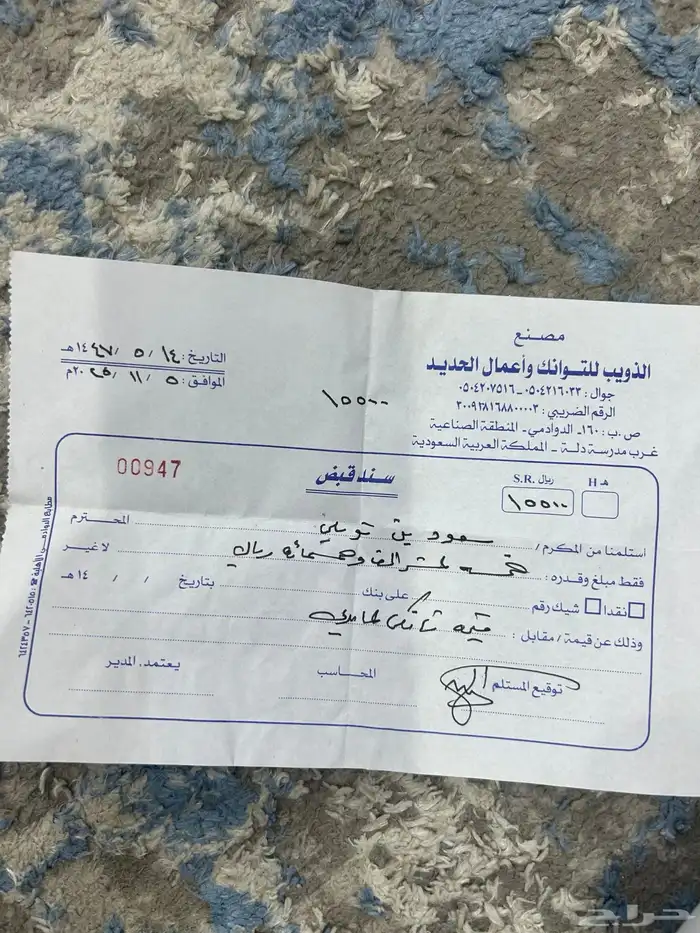 مصنع
الذويب للتوانك وأعمال الحديد
جوال : ٠٥٠٤٢١٦٠٣٣ ـ ٠٥٠٤٢٠٧٥١٦
الرقم الضريبي : ٣٠٠٩٢٨١٦٨٨٠٠٠٠٣
ص.ب : ١٦٠ـ الدوادمي- المنطقة الصناعية
غرب مدرسة دلة - المملكة العربية السعودية
التاريخ : ١٤ / ٥ / ١٤٤٧هـ
الموافق : ٥ / ١١ / ٢٠٢٥م
١٥٥٠٠
هـ H
ريال S.R.
١٥٥٠٠
سند قبض
00947
استلمنا من المكرم / سعود بن المحترم
فقط مبلغ وقدره : خمسة عشر الف وخمسمائة ريال لاغير
نقدا شيك رقم على بنك بتاريخ / / ١٤هـ
وذلك عن قيمة / مقابل : قيمة تانكي
توقيع المستلم
المحاسب
يعتمد. المدير
حراج